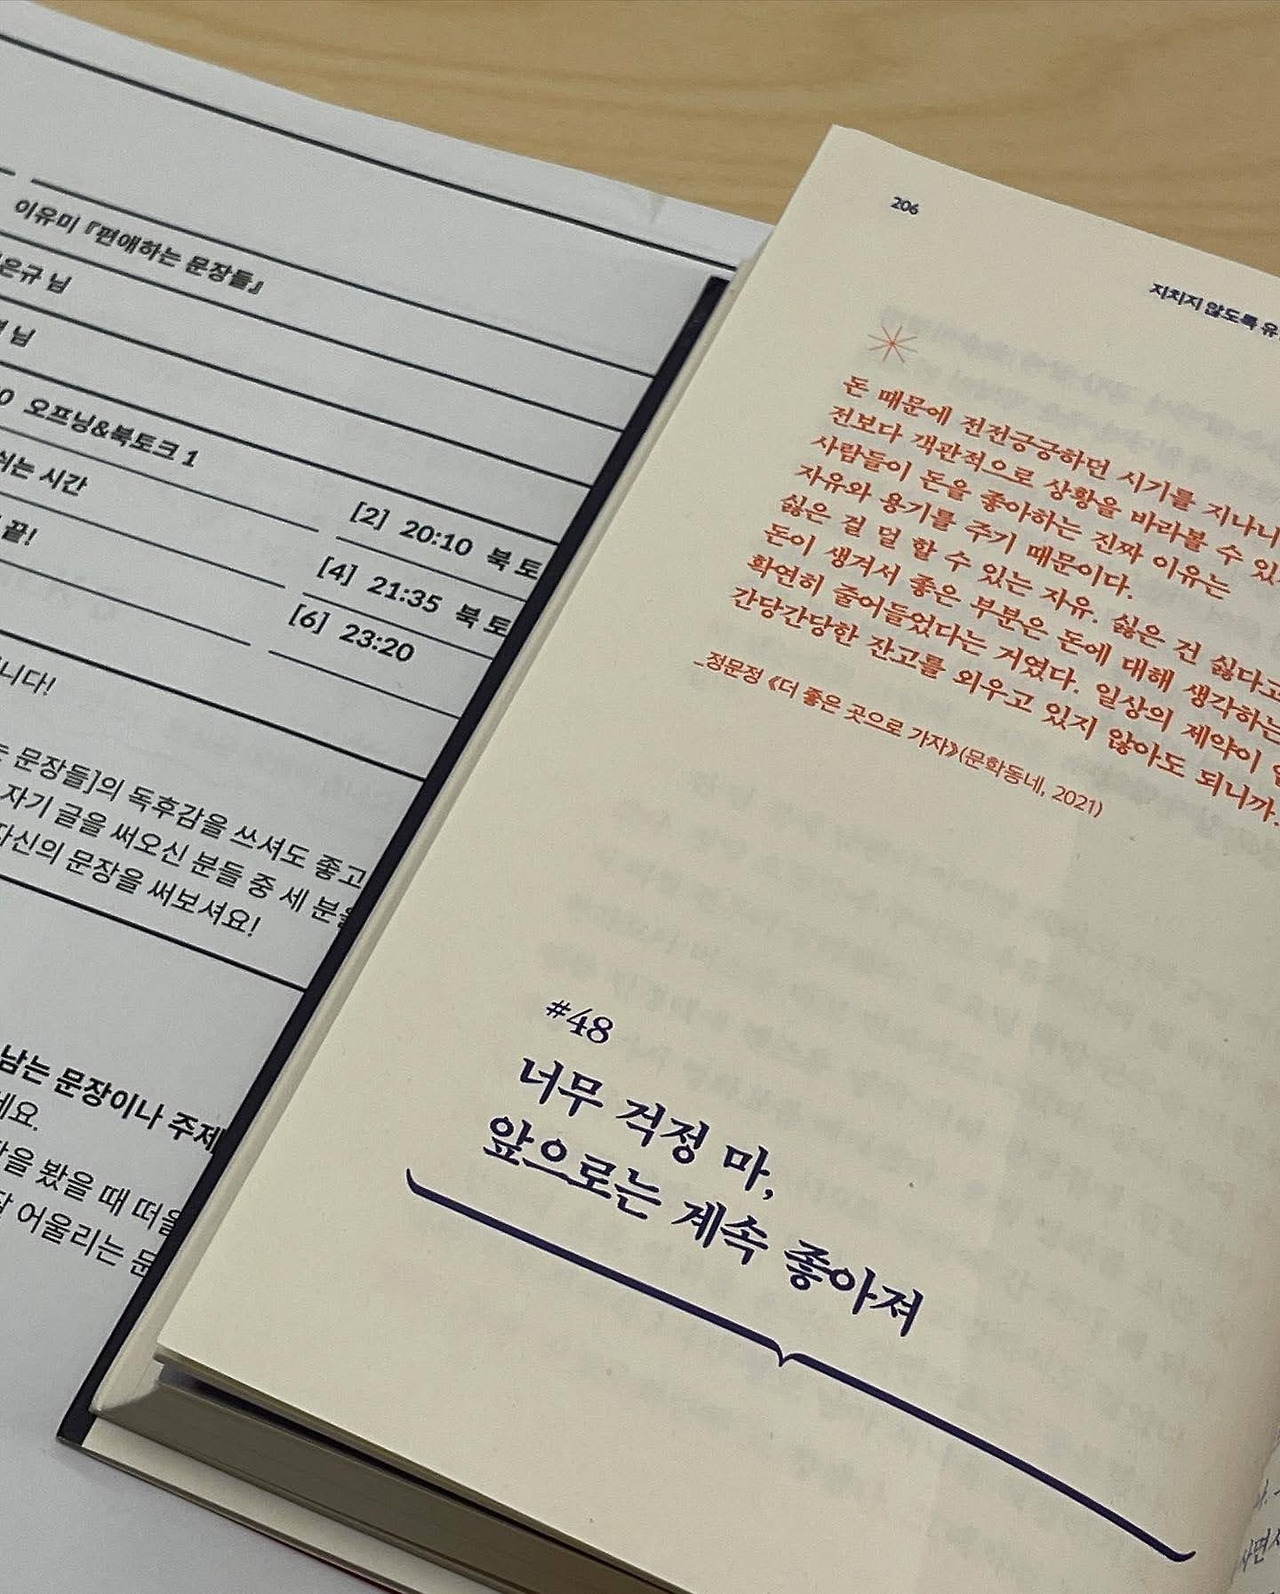 이유미 『편애하는 문장들』
은규 님
님
0 오프닝&북토크 1
쉬는 시간
[2] 20:10 북토
끝!
[4] 21:35 북토
[6] 23:20
니다!
는 문장들]의 독후감을 쓰셔도 좋고
자기 글을 써오신 분들 중 세 분을
자신의 문장을 써보셔요!
남는 문장이나 주제
세요.
을 봤을 때 떠올
어울리는 문
206
지치지 않도록 유
돈 때문에 전전긍긍하던 시기를 지나니
전보다 객관적으로 상황을 바라볼 수 있
사람들이 돈을 좋아하는 진짜 이유는
자유와 용기를 주기 때문이다.
싫은 걸 덜 할 수 있는 자유. 싫은 건 싫다고
돈이 생겨서 좋은 부분은 돈에 대해 생각하는
확연히 줄어들었다는 거였다. 일상의 제약이
간당간당한 잔고를 외우고 있지 않아도 되니까.
_정문정 《더 좋은 곳으로 가자》(문학동네, 2021)
#48
너무 걱정 마,
앞으로는 계속 좋아져